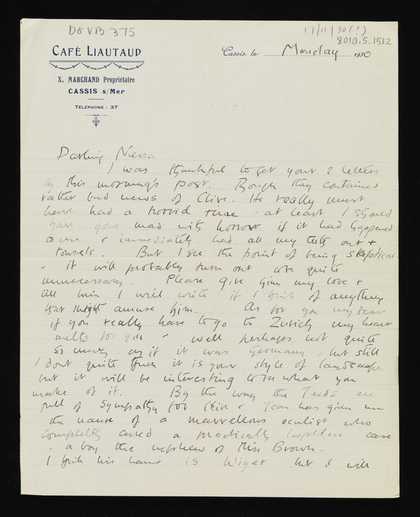 DOVB 375
17/11/30(?)
8010.5.1512
CAFÉ LIAUTAUD
X. MARCHAND Propriétaire
CASSIS s/Mer
TÉLÉPHONE : 37
Cassis le Monday 1930
Darling Nessa
I was thankful to get your 2 letters
by this morning's post. Though they contained
rather bad news of Clive. He really must
have had a horrid time - at least I should
have gone mad with horror if it had happened
to me & immediately had all my teeth out &
tonsils. But I see the point of being skeptical
- it will probably turn out quite
unnecessary. Please give him my love &
tell him I will write if I think of anything
that might amuse him. As for you my dear
if you really have to go to Zurich my heart
melts for you - well perhaps not quite
so much as if it was Germany, but still
I don't quite think it is your style of landscape
but it will be interesting to see what you
make of it. By the way the Teeds are
full of sympathy for Clive & Jean has given me
the name of a marvellous oculist who
completely cured a practically hopeless case
- a boy the nephew of Miss Brown.
I think his name is but I will